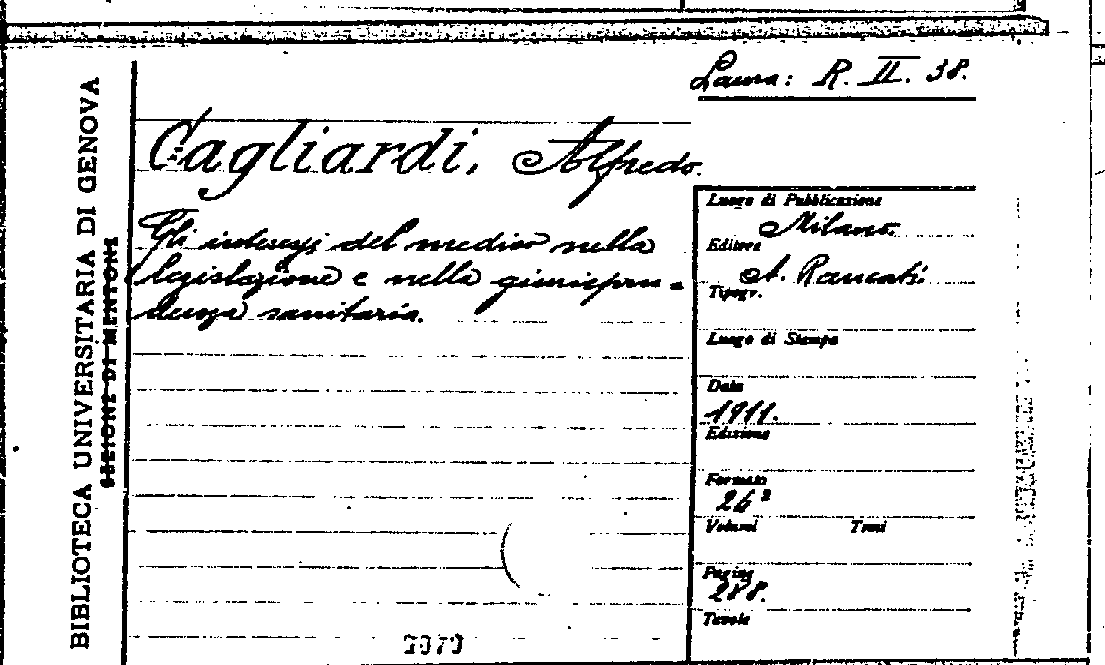 Laura: R. II. 38.
BIBLIOTECA UNIVERSITARIA DI GENOVA
SEZIONE DI MENTONE
Cagliardi, Alfredo.
Gli interessi del medico nella
legislazione e nella giurispru-
denza sanitaria.
Luogo di Pubblicazione
Milano.
Editore
A. Rancati.
Tipogr.
Luogo di Stampa
Data
1911.
Edizione
Formato
26°
Volumi Tomi
Pagine
288.
Tavole